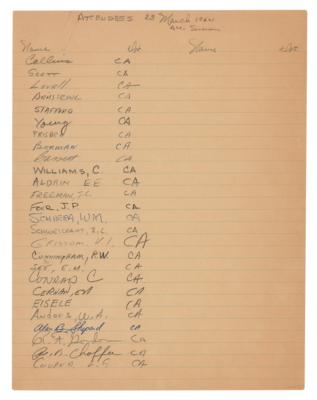 ATTENDEES 23 March 1964
A.M. Session
Name Dpt Name Dpt
Collins CA
Scott CA
Lovell CA
ARMSTRONG CA
STAFFORD CA
Young CA
CA
BORMAN CA
Bassett CA
WILLIAMS, C. CA
ALDRIN EE CA
FREEMAN, T.C. CA
CA
SCHIRRA, W.M. CA
SCHWEICKART, R.L. CA
GRISSOM, V.I. CA
CUNNINGHAM, R.W. CA
SEE, E.M. CA
CONRAD C CA
CERNAN, EA CA
EISELE CA
ANDERS, W.A. CA
Alan B. Shepard CA
R. A. Gordon CA
R. B. Chaffee CA
COOPER L.G CA